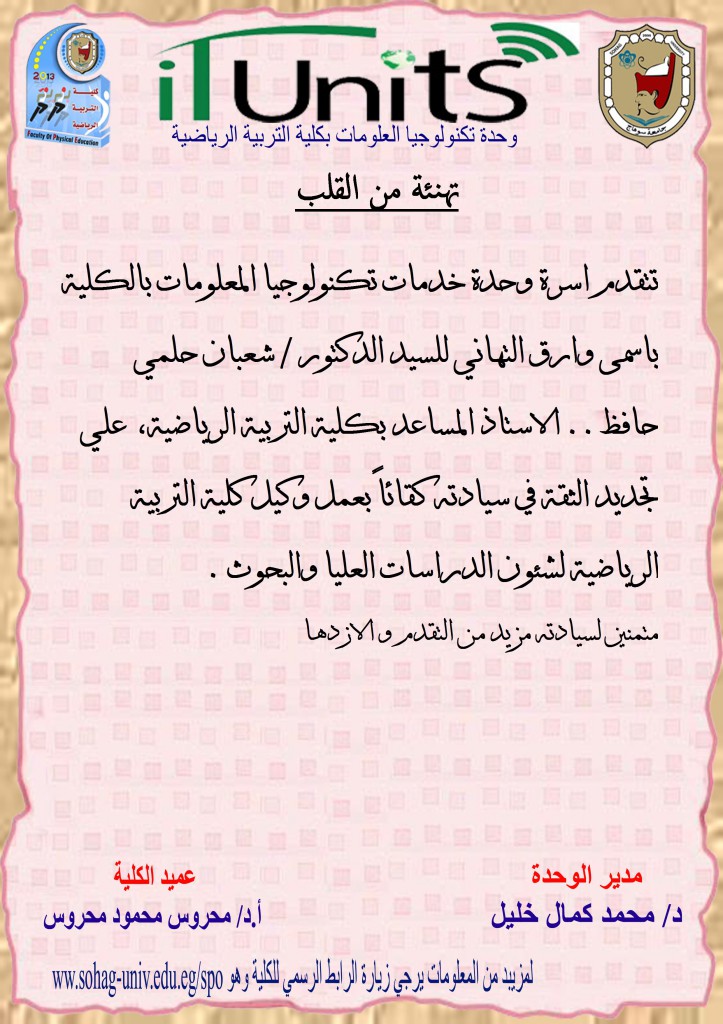 2013
كلية
التربية
الرياضية
Faculty Of Physical Education
iTUnitS
جامعة سوهاج
وحدة تكنولوجيا العلومات بكلية التربية الرياضية
تهنئة من القلب
تتقدم اسرة وحدة خدمات تكنولوجيا المعلومات بالكلية
باسمى وارق التهاني للسيد الدكتور / شعبان حلمي
حافظ .. الاستاذ المساعد بكلية التربية الرياضية، علي
تجديد الثقة في سيادته كقائاً بعمل وكيل كلية التربية
الرياضية لشئون الدراسات العليا والبحوث .
متمنين لسيادته مزيد من التقدم و الازدها
مدير الوحدة
د/ محمد كمال خليل
عميد الكلية
أ.د/ محروس محمود محروس
لمزيبد من المعلومات يرجي زيارة الرابط الرسمي للكلية وهو www.sohag-univ.edu.eg/spo